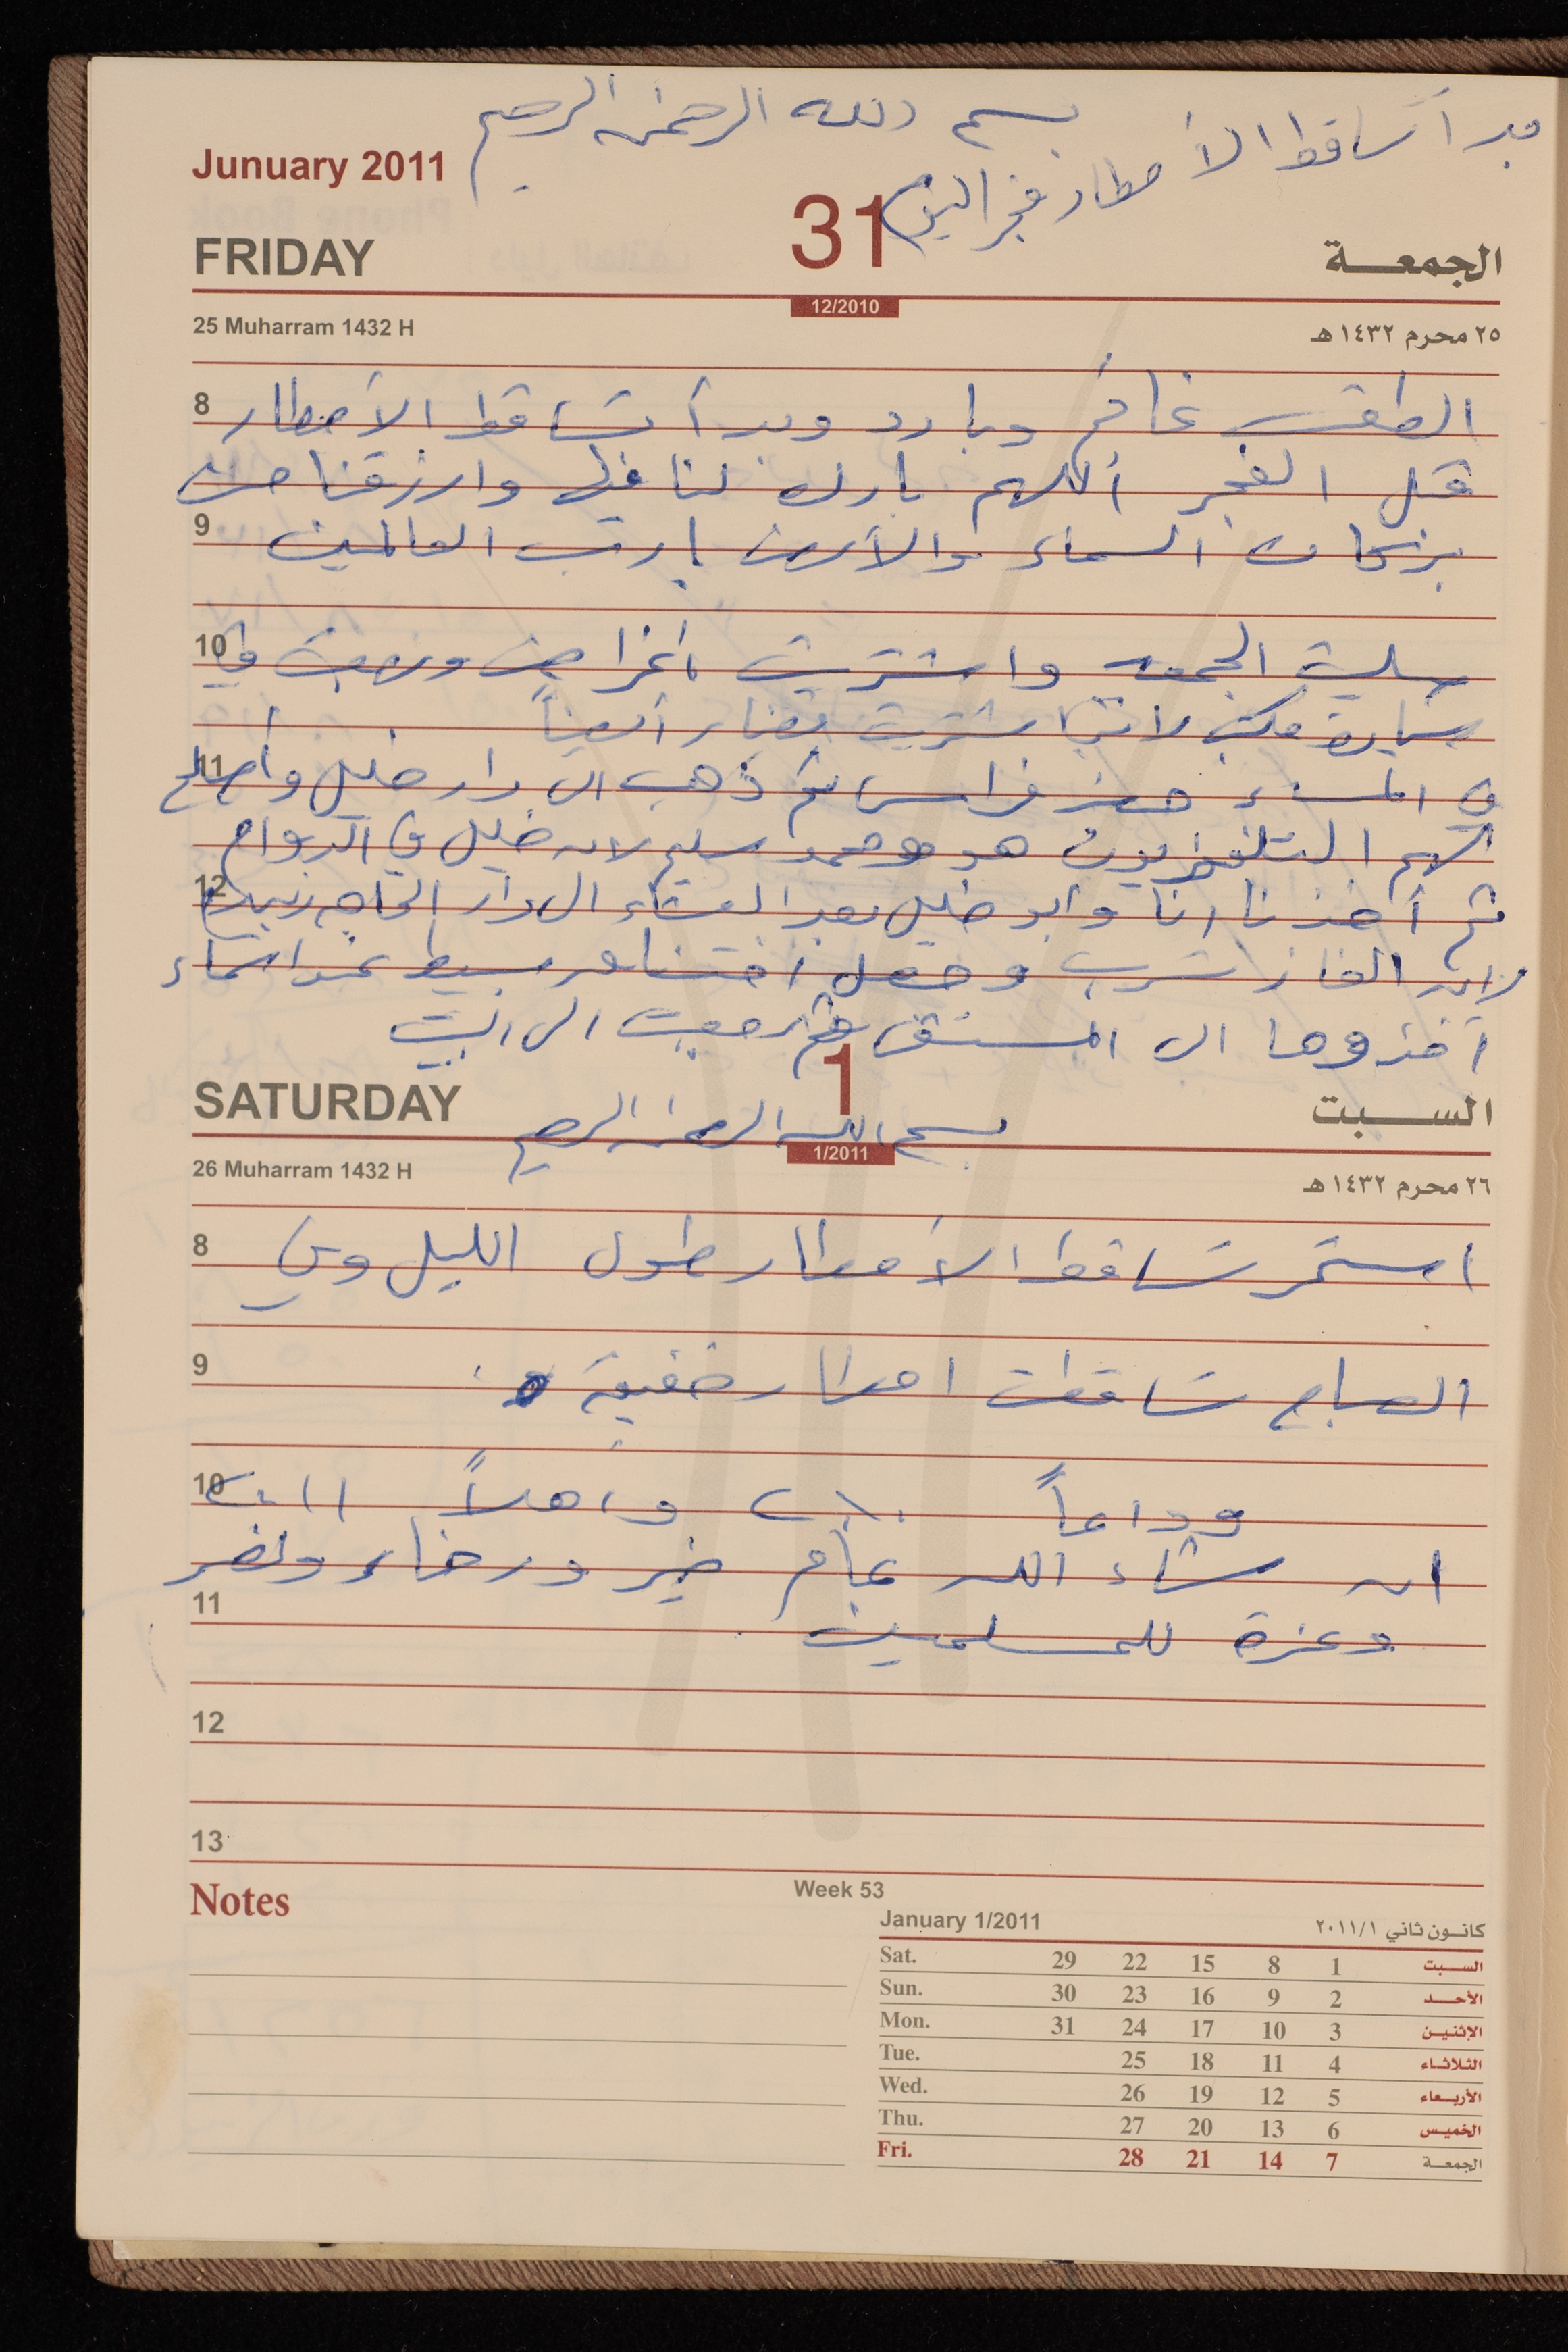 بسم الله الرحمن الرحيم
بدأ تساقط الأمطار فجر اليوم
Junuary 2011
FRIDAY 31 الجمعة
12/2010
25 Muharram 1432 H ٢٥ محرم ١٤٣٢ هـ
8 الطقس غائم وبارد وبدأ تساقط الأمطار
قبل الفجر اللهم بارك لنا فيه وارزقنا من
9 بركات السماء والأرض يا رب العالمين
10 صليت الجمعه واشتريت اغراض ورجعت في
سيارة مكتب اشتريت أيضاً
11 في المساء حضر فراس ثم ذهب الى دار خليل وأصلح
لهم التلفزيون هو ومحمد سليم لانه خليل في الدوام
12 ثم أخذنا انا وأبو خليل بعد العشاء الى دار الحاجه
لانه الغاز تسرب وحصل اختناق بسيط عند اسماء
أخذوها الى المستشفى ثم رجعت الى البيت
SATURDAY 1 السبت
بسم الله الرحمن الرحيم
1/2011
26 Muharram 1432 H ٢٦ محرم ١٤٣٢ هـ
8 استمر تساقط الأمطار طول الليل وفي
9 الصباح تساقطت امطار خفيفة
10 وداعاً ٢٠١٠ واهلاً ٢٠١١
ان شاء الله عام خير ورخاء ونصر
11 وعزة للمسلمين
12
13
Notes
Week 53
January 1/2011 كانون ثاني ٢٠١١/١
Sat. 29 22 15 8 1 السبت
Sun. 30 23 16 9 2 الأحد
Mon. 31 24 17 10 3 الإثنين
Tue. 25 18 11 4 الثلاثاء
Wed. 26 19 12 5 الأربعاء
Thu. 27 20 13 6 الخميس
Fri. 28 21 14 7 الجمعة